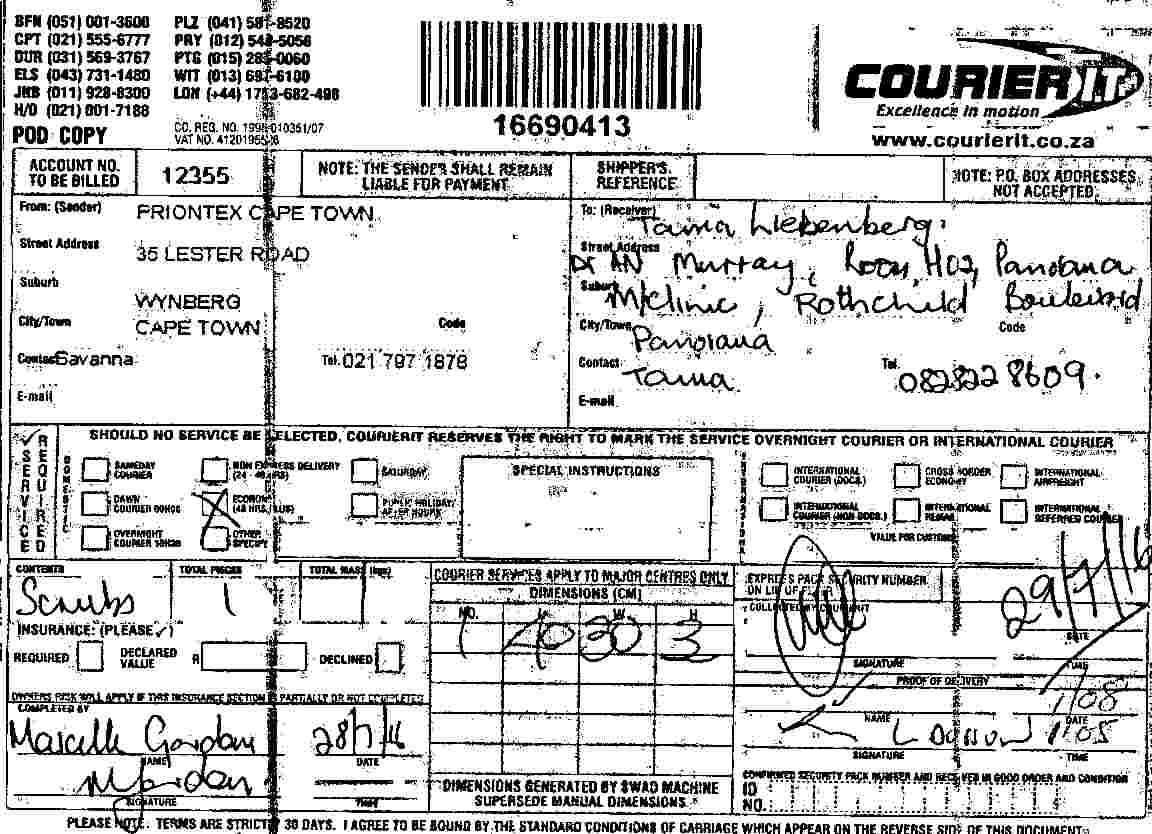 BFN (051) 001-3600 PLZ (041) 581-8520
CPT (021) 555-6777 PRY (012) 548-5056
DUR (031) 569-3767 PTG (015) 285-0060
ELS (043) 731-1480 WIT (013) 697-6100
JNB (011) 928-8300 LON (+44) 1753-682-498
H/O (021) 001-7188
POD COPY
CO. REG. NO. 1998-010351/07
VAT NO.
16690413
COURIER IT
Excellence in motion
www.courierit.co.za
ACCOUNT NO. TO BE BILLED 12355
NOTE: THE SENDER SHALL REMAIN LIABLE FOR PAYMENT
SHIPPER'S REFERENCE
NOTE: P.O. BOX ADDRESSES NOT ACCEPTED
From: (Sender) PRIONTEX CAPE TOWN
Street Address 35 LESTER ROAD
Suburb WYNBERG
City/Town CAPE TOWN Code
Contact Savanna Tel. 021 797 1878
E-mail
To: (Receiver) Tania Liebenberg.
Street Address Dr AN Murray, Room H02, Panorama
Suburb M/clinic, Rothchild Boulevard
City/Town Panorama Code
Contact Tania Tel. 082822 8609.
E-mail
✓ SERVICE REQUIRED
SHOULD NO SERVICE BE SELECTED, COURIERIT RESERVES THE RIGHT TO MARK THE SERVICE OVERNIGHT COURIER OR INTERNATIONAL COURIER
DOMESTIC
SAMEDAY COURIER
NON EXPRESS DELIVERY (24 - 48 HRS)
SATURDAY
DAWN COURIER 09H00
ECONOMY (48 HRS PLUS)
PUBLIC HOLIDAY/ AFTER HOURS
OVERNIGHT COURIER 10H30
OTHER SPECIFY
SPECIAL INSTRUCTIONS
INTERNATIONAL COURIER (DOCS.)
CROSS BORDER ECONOMY
INTERNATIONAL AIRFREIGHT
INTERNATIONAL COURIER (NON DOCS.)
INTERNATIONAL
INTERNATIONAL DEFERRED COURIER
VALUE FOR CUSTOMS
CONTENTS Scrubs
TOTAL PIECES 1
TOTAL MASS (kgs) 1
INSURANCE: (PLEASE ✓)
REQUIRED DECLARED VALUE R DECLINED
OWNERS RISK WILL APPLY IF THIS INSURANCE SECTION IS PARTIALLY OR NOT COMPLETED
COMPLETED BY
Marcelle Gordon 28/7/16
NAME DATE
SIGNATURE TIME
COURIER SERVICES APPLY TO MAJOR CENTRES ONLY
DIMENSIONS (CM)
NO. L W H
1 40 30 3
DIMENSIONS GENERATED BY SWAD MACHINE SUPERSEDE MANUAL DIMENSIONS.
EXPRESS PACK SECURITY NUMBER ON LIP OF FLYER
COLLECTED BY COURIERIT
29/7/16
DATE
SIGNATURE TIME
PROOF OF DELIVERY
11/08
NAME DATE
11:05
SIGNATURE TIME
CONFIRMED SECURITY PACK NUMBER AND RECEIVED IN GOOD ORDER AND CONDITION
ID NO.
PLEASE NOTE. TERMS ARE STRICTLY 30 DAYS. I AGREE TO BE BOUND BY THE STANDARD CONDITIONS OF CARRIAGE WHICH APPEAR ON THE REVERSE SIDE OF THIS DOCUMENT